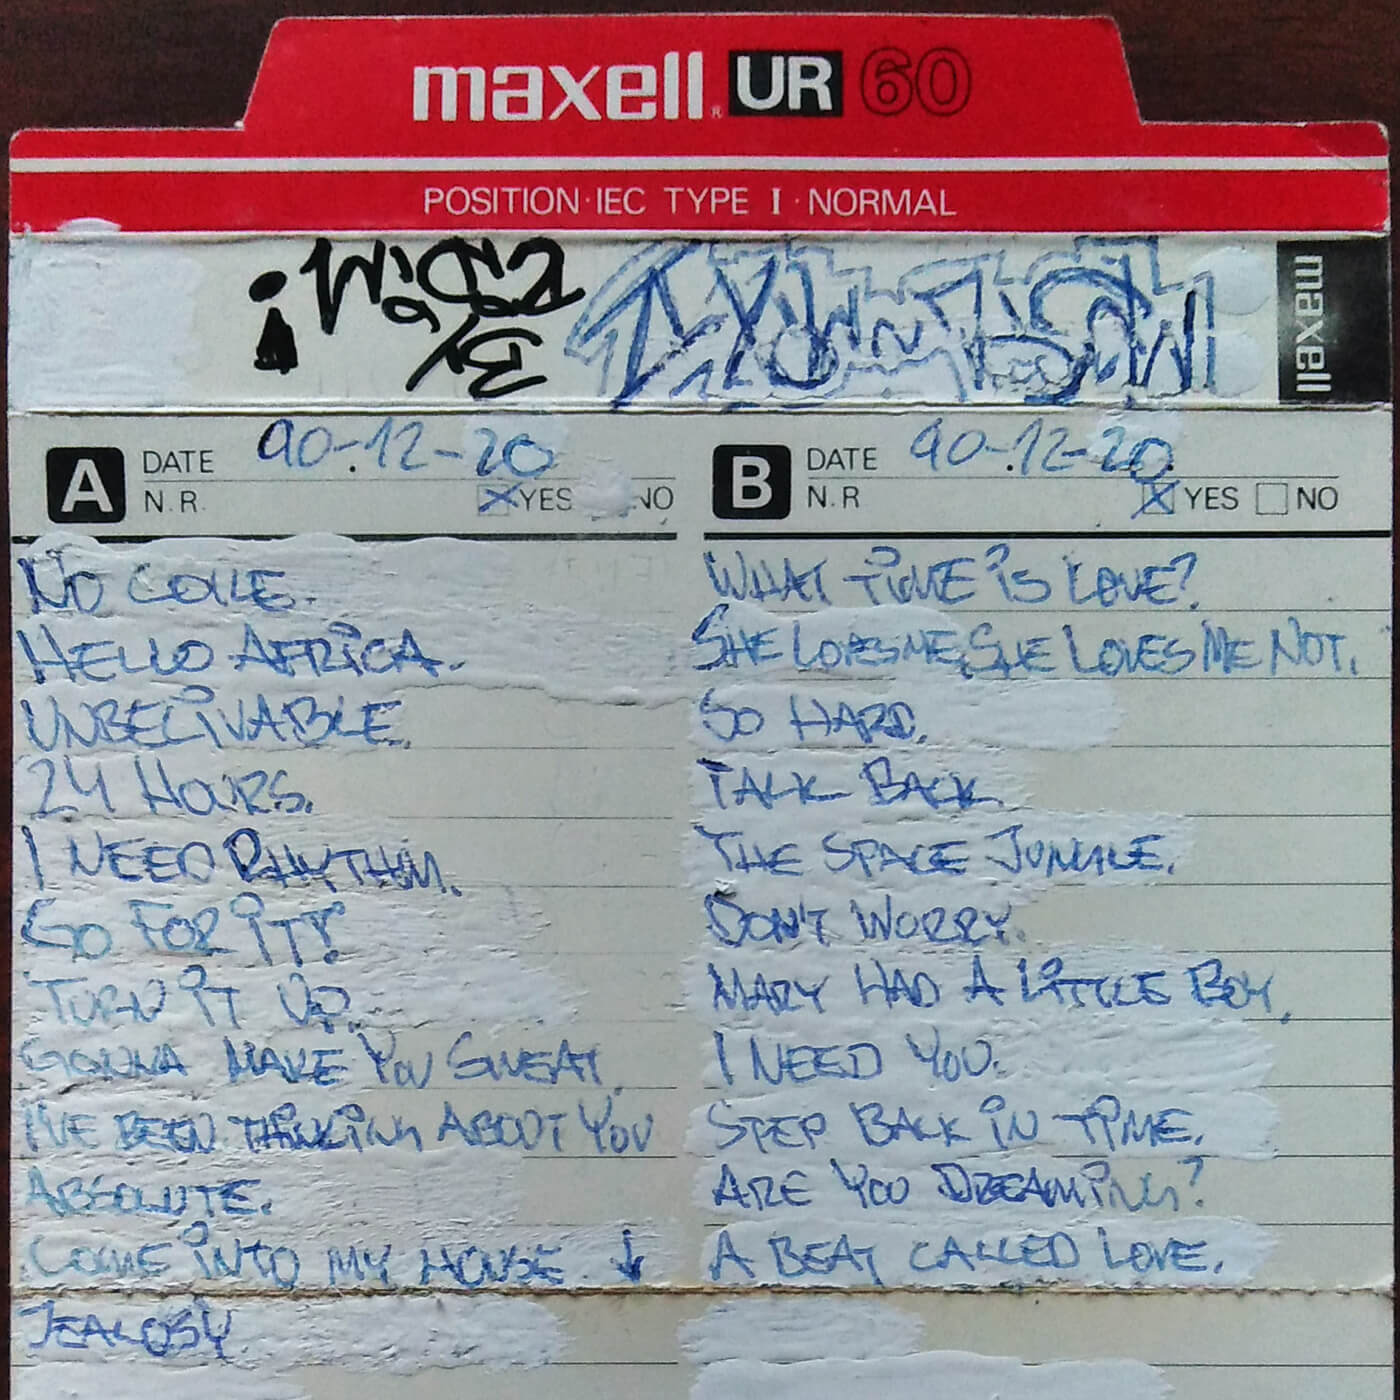 maxell UR 60
POSITION·IEC TYPE I·NORMAL
maxell
A DATE 90-12-20
N.R. YES NO
NO COILE.
HELLO AFRICA.
UNBELIVABLE.
24 HOURS.
I NEED RHYTHM.
GO FOR IT!
TURN IT UP.
GONNA MAKE YOU SWEAT.
I'VE BEEN THINKING ABOUT YOU
ABSOLUTE.
COME INTO MY HOUSE. ↓
JEALOSY.
B DATE 90-12-20
N.R YES NO
WHAT TIME IS LOVE?
SHE LOVES ME, SHE LOVES ME NOT.
SO HARD.
TALK BACK.
THE SPACE JUNGLE.
DON'T WORRY.
MARY HAD A LITTLE BOY.
I NEED YOU.
STEP BACK IN TIME.
ARE YOU DREAMING?
A BEAT CALLED LOVE.